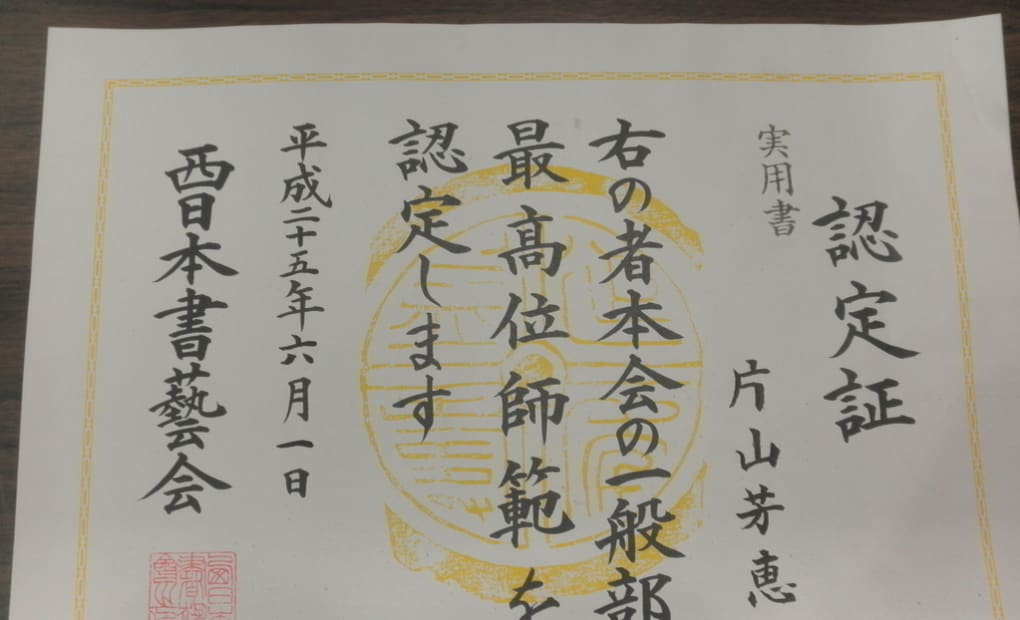 認定証
実用書
片山芳恵
右の者本会の一般部
最高位師範を
認定します
平成二十五年六月一日
西日本書藝会